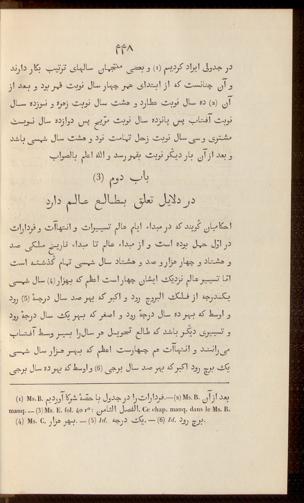 ٤٤٨
در جدولی ایراد کردیم (1) و بعضی منجمان سالهای ترتیب بکار دارند
و آن چنانست که از ابتدای عمر چهار سال نوبت قمر بود و بعد از
آن (2) ده سال نوبت عطارد و هشت سال نوبت زهره و نوزده سال
نوبت آفتاب پس پانزده سال نوبت مریخ پس دوازده سال نوبت
مشتری و سی سال نوبت زحل تمامت نود و هشت سال شمسی باشد
و بعد از آن بار دیگر نوبت بقمر رسد و الله اعلم بالصواب
باب دوم (3)
در دلایل تعلق بطالع عالم دارد
احکامیان گویند که در مبداء ایام عالم تسییرات و انتهاآت و فردارات
در اوّل حمل بوده است و از مبداء عالم تا مبداء تاریخ ملکی صد
و هشتاد و چهار هزار و صد و هشتاد سال شمسی تمام گذشته است
امّا تسییر عالم نزدیک ایشان چهار است اعظم که بهزار (4) سال شمسی
یکدرجه از فلک البروج رود و اکبر که بهر صد سال درجهٔ (5) رود
و اوسط که بهر ده سال درجهٔ رود و اصغر که بهر یک سال درجهٔ رود
و تسییری دیگر باشد که طالع تحویل هر سال را بسیر وسط آفتاب
می‌رانند و انتهاآت هم چهارست اعظم که بهر هزار سال شمسی
یک برج رود اکبر که بهر صد سال برجی (6) و اوسط که بهر ده سال برجی
(1) Ms. B. فردارات را در جدول با حصّهٔ شرکا آوردیم.—(2) Ms. B. بعد از آن
manq. — (3) Ms. E. fol. 40 r°: الفصل الثامن. Ce chap. manq. dans le Ms. B.
(4) Ms. C. بهر هزار. — (5) Id. یک درجه. — (6) Id. برج رود.